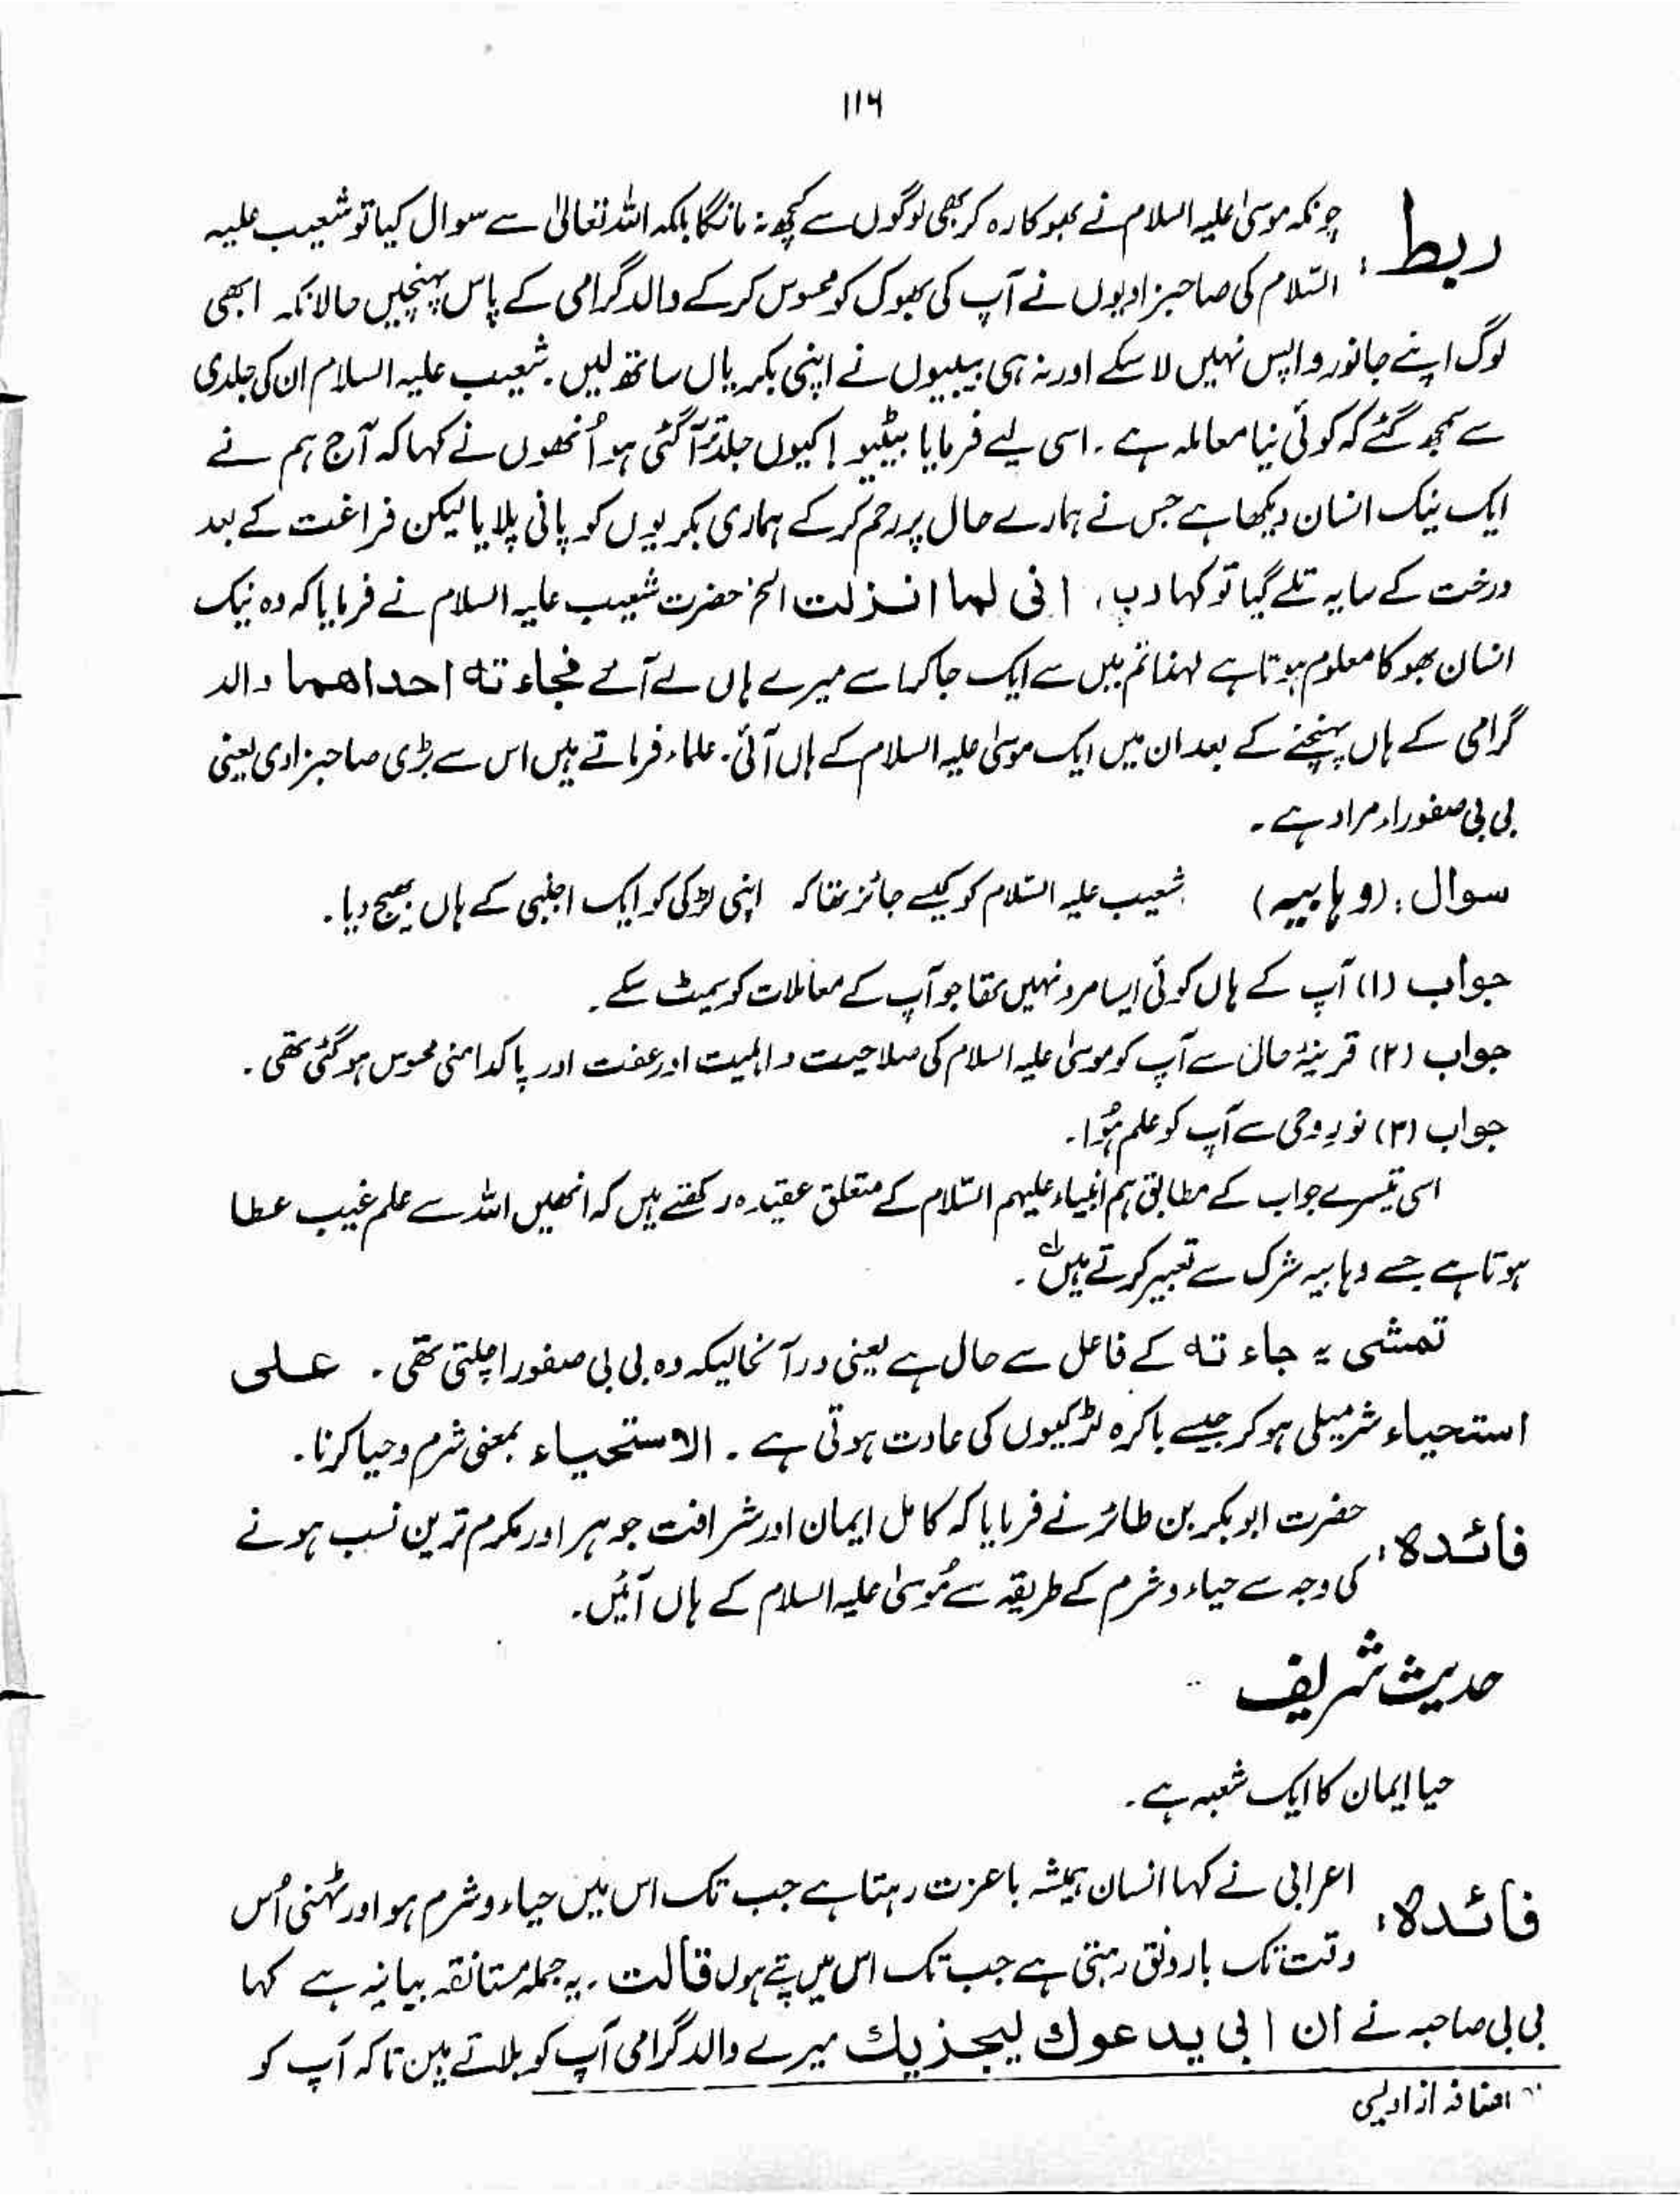 ۱۱۶
ربط: چونکہ موسیٰ علیہ السلام نے بھوکا رہ کر بھی لوگوں سے کچھ نہ مانگا بلکہ اللہ تعالیٰ سے سوال کیا تو شعیب علیہ
السّلام کی صاحبزادیوں نے آپ کی بھوک کو محسوس کرکے والد گرامی کے پاس پہنچیں حالانکہ ابھی
لوگ اپنے جانور واپس نہیں لا سکے اور نہ ہی بیبیوں نے اپنی بکریاں ساتھ لیں۔ شعیب علیہ السلام ان کی جلدی
سے سمجھ گئے کہ کوئی نیا معاملہ ہے۔ اسی لیے فرمایا بیٹیو! کیوں جلد تر آگئی ہو اُنھوں نے کہا کہ آج ہم نے
ایک نیک انسان دیکھا ہے جس نے ہمارے حال پر رحم کرکے ہماری بکریوں کو پانی پلایا لیکن فراغت کے بعد
درخت کے سایہ تلے گیا تو کہا رب، انی لما انزلت الخ حضرت شعیب علیہ السلام نے فرمایا کہ وہ نیک
انسان بھوکا معلوم ہوتا ہے لہذا تم میں سے ایک جاکر اسے میرے ہاں لے آئے فجاءتہ احداھما والد
گرامی کے ہاں پہنچنے کے بعد ان میں ایک موسیٰ علیہ السلام کے ہاں آئی۔ علماء فرماتے ہیں اس سے بڑی صاحبزادی یعنی
بی بی صفوراء مراد ہے۔
سوال: (وہابیہ) شعیب علیہ السّلام کو کیسے جائز تھا کہ اپنی لڑکی کو ایک اجنبی کے ہاں بھیج دیا۔
جواب (۱) آپ کے ہاں کوئی ایسا مرد نہیں تھا جو آپ کے معاملات کو سمیٹ سکے۔
جواب (۲) قرینۂ حال سے آپ کو موسیٰ علیہ السلام کی صلاحیت و اہلیت اور عفت اور پاکدامنی محسوس ہوگئی تھی۔
جواب (۳) نورِ وحی سے آپ کو علم ہُوا۔
اسی تیسرے جواب کے مطابق ہم انبیاء علیہم السّلام کے متعلق عقیدہ رکھتے ہیں کہ انھیں اللہ سے علم غیب عطا
ہوتا ہے جسے وہابیہ شرک سے تعبیر کرتے ہیں لہ۔
تمشی یہ جاءتہ کے فاعل سے حال ہے یعنی درآنحالیکہ وہ بی بی صفورا چلتی تھی۔ علی
استحیاء شرمیلی ہوکر جیسے باکرہ لڑکیوں کی عادت ہوتی ہے۔ الاستحیاء بمعنی شرم و حیا کرنا۔
فائدہ: حضرت ابوبکر بن طائر نے فرمایا کہ کامل ایمان اور شرافت جوہر اور مکرم ترین نسب ہونے
کی وجہ سے حیاء و شرم کے طریقہ سے مُوسیٰ علیہ السلام کے ہاں آئیں۔
حدیث شریف
حیا ایمان کا ایک شعبہ ہے۔
فائدہ: اعرابی نے کہا انسان ہمیشہ باعزت رہتا ہے جب تک اس میں حیاء و شرم ہو اور ٹہنی اُس
وقت تک بارونق رہتی ہے جب تک اس میں پتے ہوں قالت۔ یہ جملہ مستانفہ بیانیہ ہے کہا
بی بی صاحبہ نے ان ابی یدعوك لیجزیك میرے والد گرامی آپ کو بلاتے ہیں تاکہ آپ کو
اضافہ از اویسی